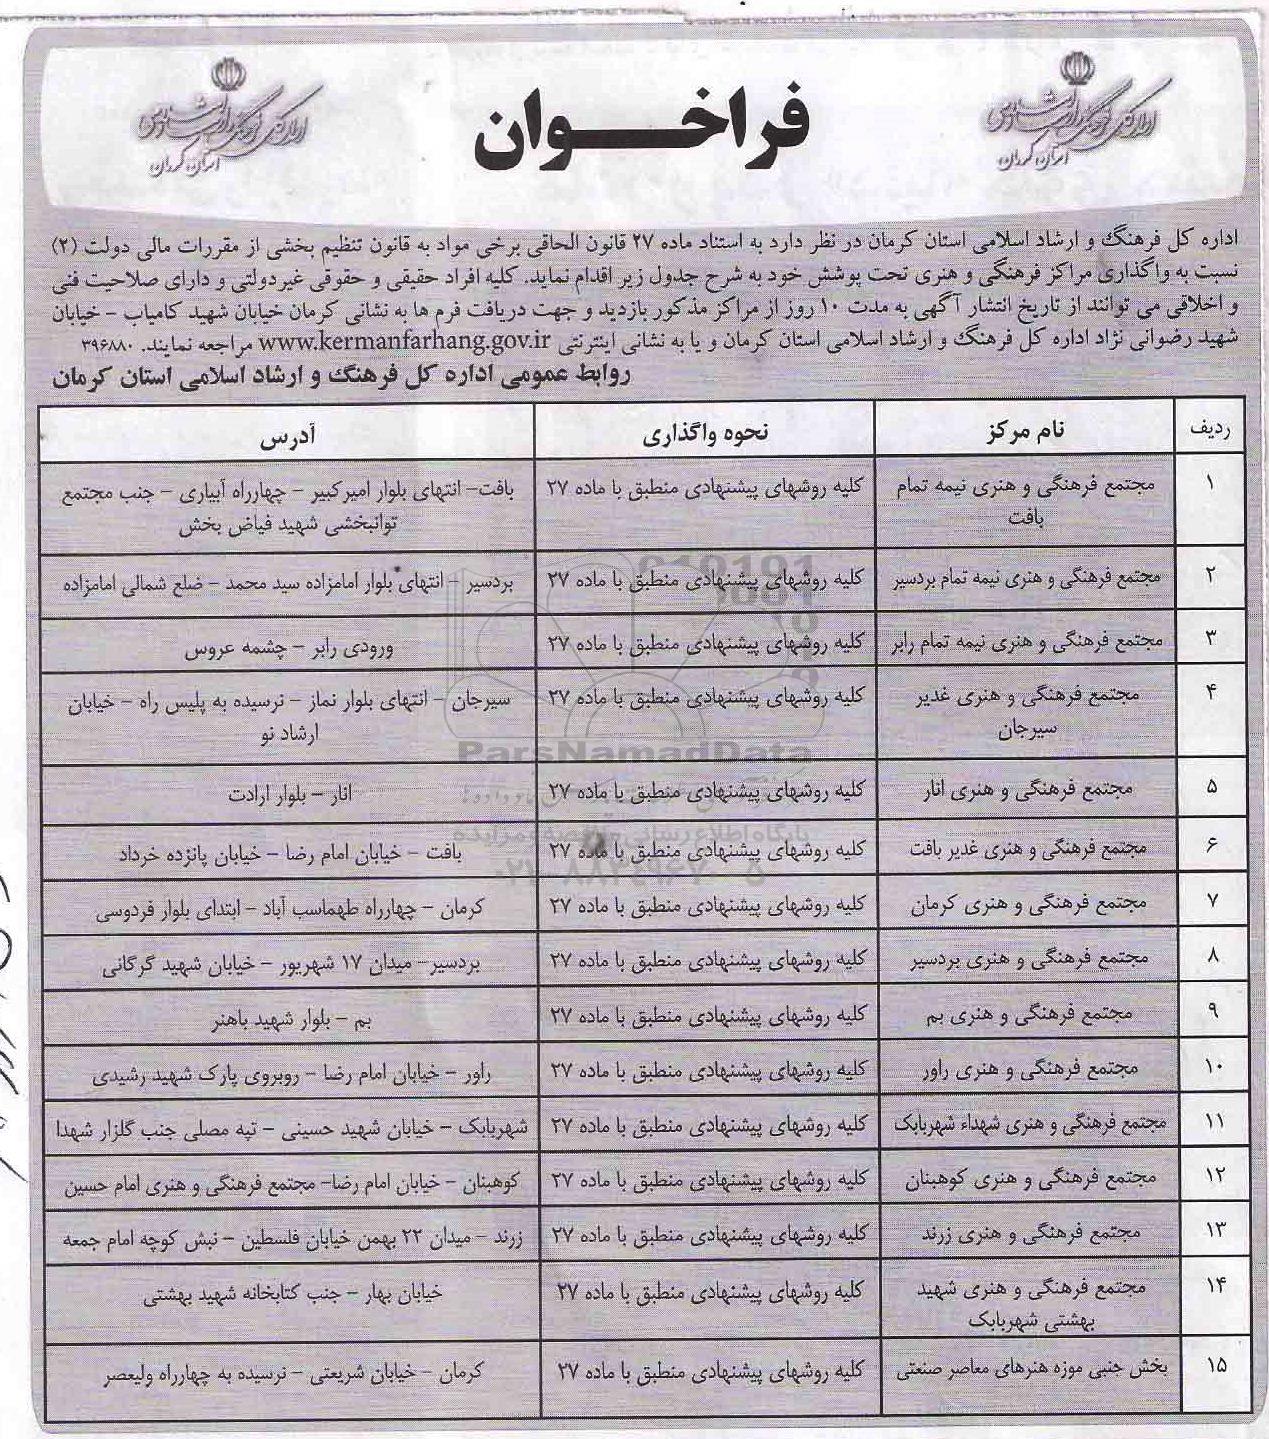 اداره کل فرهنگ و ارشاد اسلامی
استان کرمان
فراخوان
اداره کل فرهنگ و ارشاد اسلامی
استان کرمان
اداره کل فرهنگ و ارشاد اسلامی استان کرمان در نظر دارد به استناد ماده ۲۷ قانون الحاقی برخی مواد به قانون تنظیم بخشی از مقررات مالی دولت (۲)
نسبت به واگذاری مراکز فرهنگی و هنری تحت پوشش خود به شرح جدول زیر اقدام نماید. کلیه افراد حقیقی و حقوقی غیردولتی و دارای صلاحیت فنی
و اخلاقی می توانند از تاریخ انتشار آگهی به مدت ۱۰ روز از مراکز مذکور بازدید و جهت دریافت فرم ها به نشانی کرمان خیابان شهید کامیاب - خیابان
شهید رضوانی نژاد اداره کل فرهنگ و ارشاد اسلامی استان کرمان و یا به نشانی اینترنتی www.kermanfarhang.gov.ir مراجعه نمایند. ۳۹۶۸۸۰
روابط عمومی اداره کل فرهنگ و ارشاد اسلامی استان کرمان
ردیف نام مرکز نحوه واگذاری آدرس
۱ مجتمع فرهنگی و هنری نیمه تمام کلیه روشهای پیشنهادی منطبق با ماده ۲۷ بافت- انتهای بلوار امیرکبیر - چهارراه آبیاری - جنب مجتمع
بافت توانبخشی شهید فیاض بخش
۲ مجتمع فرهنگی و هنری نیمه تمام بردسیر کلیه روشهای پیشنهادی منطبق با ماده ۲۷ بردسیر - انتهای بلوار امامزاده سید محمد - ضلع شمالی امامزاده
۳ مجتمع فرهنگی و هنری نیمه تمام رابر کلیه روشهای پیشنهادی منطبق با ماده ۲۷ ورودی رابر - چشمه عروس
۴ مجتمع فرهنگی و هنری غدیر کلیه روشهای پیشنهادی منطبق با ماده ۲۷ سیرجان - انتهای بلوار نماز - نرسیده به پلیس راه - خیابان
سیرجان ارشاد نو
ParsNamadData
۵ مجتمع فرهنگی و هنری انار کلیه روشهای پیشنهادی منطبق با ماده ۲۷ انار - بلوار ارادت
پایگاه اطلاع رسانی مناقصه و مزایده
۶ مجتمع فرهنگی و هنری غدیر بافت کلیه روشهای پیشنهادی منطبق با ماده ۲۷ بافت - خیابان امام رضا - خیابان پانزده خرداد
۷ مجتمع فرهنگی و هنری کرمان کلیه روشهای پیشنهادی منطبق با ماده ۲۷ کرمان - چهارراه طهماسب آباد - ابتدای بلوار فردوسی
۸ مجتمع فرهنگی و هنری بردسیر کلیه روشهای پیشنهادی منطبق با ماده ۲۷ بردسیر- میدان ۱۷ شهریور - خیابان شهید گرگانی
۹ مجتمع فرهنگی و هنری بم کلیه روشهای پیشنهادی منطبق با ماده ۲۷ بم - بلوار شهید باهنر
۱۰ مجتمع فرهنگی و هنری راور کلیه روشهای پیشنهادی منطبق با ماده ۲۷ راور - خیابان امام رضا - روبروی پارک شهید رشیدی
۱۱ مجتمع فرهنگی و هنری شهداء شهربابک کلیه روشهای پیشنهادی منطبق با ماده ۲۷ شهربابک - خیابان شهید حسینی - تپه مصلی جنب گلزار شهدا
۱۲ مجتمع فرهنگی و هنری کوهبنان کلیه روشهای پیشنهادی منطبق با ماده ۲۷ کوهبنان - خیابان امام رضا- مجتمع فرهنگی و هنری امام حسین
۱۳ مجتمع فرهنگی و هنری زرند کلیه روشهای پیشنهادی منطبق با ماده ۲۷ زرند - میدان ۲۲ بهمن خیابان فلسطین - نبش کوچه امام جمعه
۱۴ مجتمع فرهنگی و هنری شهید کلیه روشهای پیشنهادی منطبق با ماده ۲۷ خیابان بهار - جنب کتابخانه شهید بهشتی
بهشتی شهربابک
۱۵ بخش جنبی موزه هنرهای معاصر صنعتی کلیه روشهای پیشنهادی منطبق با ماده ۲۷ کرمان - خیابان شریعتی - نرسیده به چهارراه ولیعصر